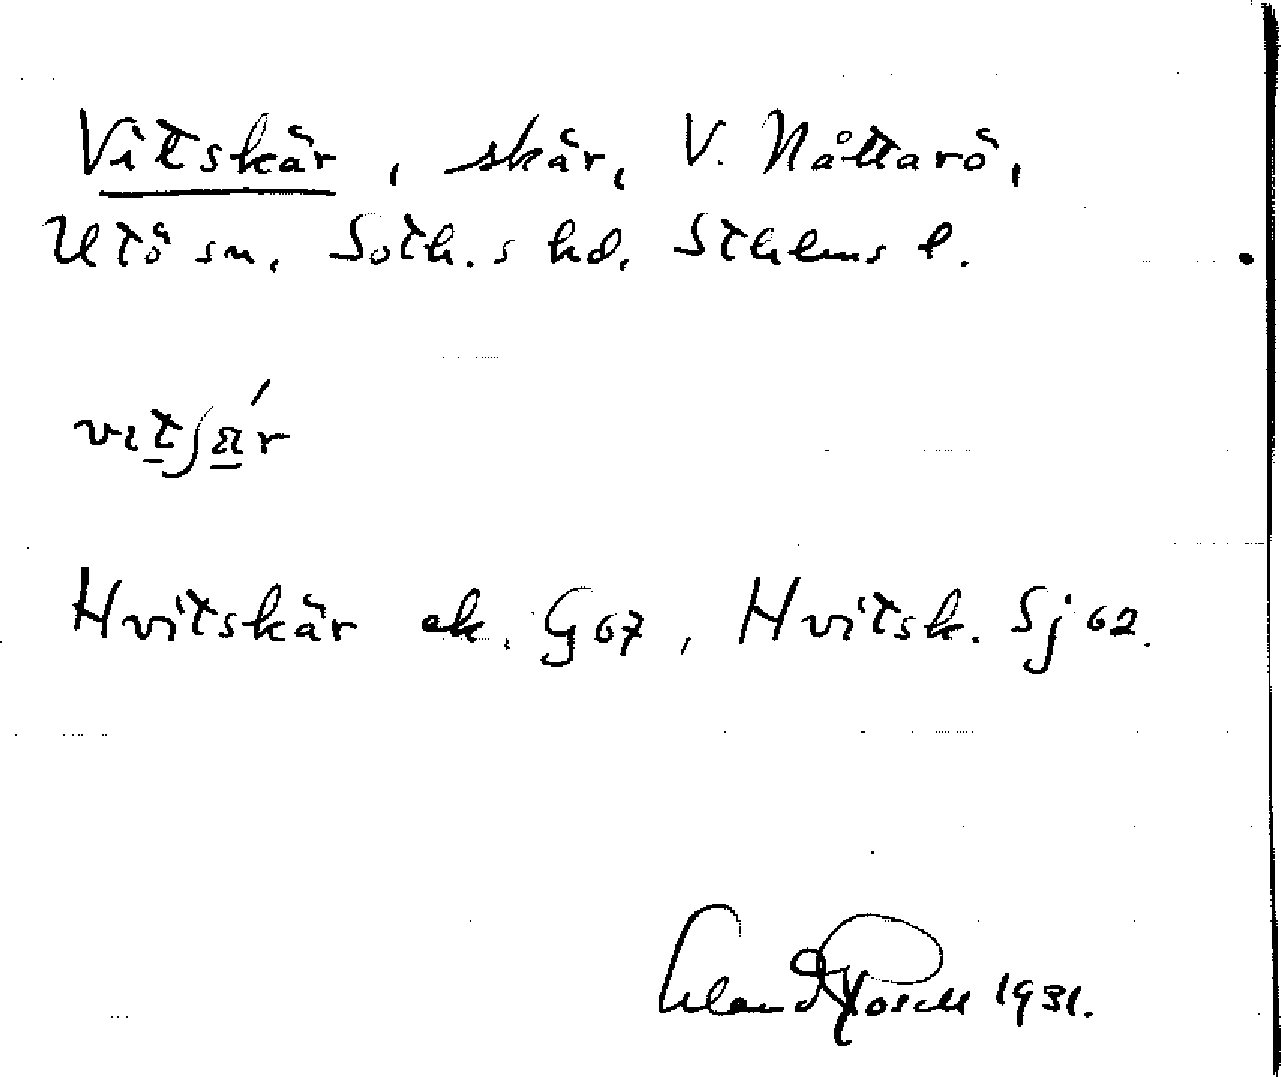 Vitskär, skär, V. Nåttarö,
Utö sn. Soth.s hd. Sthlms l.
vitʃä́r
Hvitskär ek. G 67, Hvitsk. Sj 62.
Erland Rosell 1931.